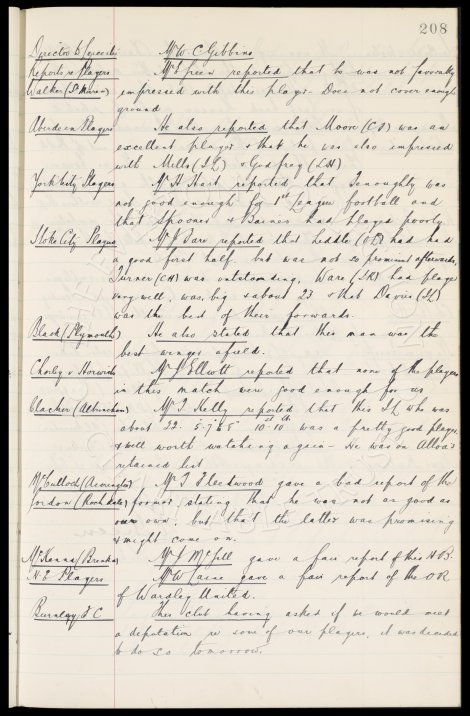 208
Director to Specialise Mr W. C. Gibbins
Reports re Players Mr Green reported that he was not favorably
Walker (St Mirren) impressed with this player. Does not cover enough
ground.
Aberdeen Players He also reported that Moore (CF) was an
excellent player & that he was also impressed
with Mills (IL) & Godfrey (LH)
York City Players Mr H Hart reported that Fenoughty was
not good enough for 1st League football and
that Spooner & Baines had played poorly
Stoke City Players Mr J Bare reported that Liddle (OL) had had
a good first half, but was not so prominent afterwards,
Turner (CH) was outstanding, Ware (IR) had played
very well, was big & about 23 & that Davies (IL)
was the best of their forwards.
Black (Plymouth) He also stated that this man was the
best winger afield.
Chorley v Horwich Mr S Elliott reported that none of the players
in this match were good enough for us
Clacher (Altrincham) Mr J. Kelly reported that this IL who was
about 22. 5-7 & 5 10st-10lb was a pretty good player
& well worth watching again. He was on Alloa's
retained list.
McCulloch (Accrington) Mr J Fleetwood gave a bad report of the
Jordon (Rochdale) former stating that he was not as good as
our own, but that the latter was promising
& might come on.
McKenna (Brenka) Mr J McGill gave a fair report of this HB.
N E Players Mr W Caine gave a fair report of the OR
of Wardley United.
Burnley F C This club having asked if we would meet
a deputation re some of our players, it was decided
to do so tomorrow.